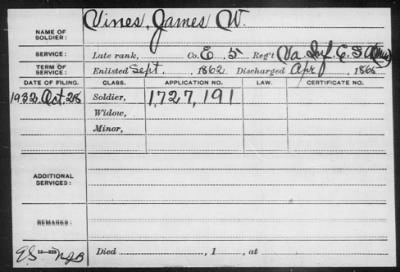 NAME OF SOLDIER: Vines, James W.
SERVICE: Late rank, Co. E, 5 Reg't Va Inf. C. S.
TERM OF SERVICE: Enlisted Sept. 1862 Discharged Apr 1865
DATE OF FILING. CLASS. APPLICATION NO. LAW. CERTIFICATE NO.
1932 Oct. 28 Soldier, 1,727,191
Widow,
Minor,
ADDITIONAL SERVICES:
REMARKS:
Died , 1 , at